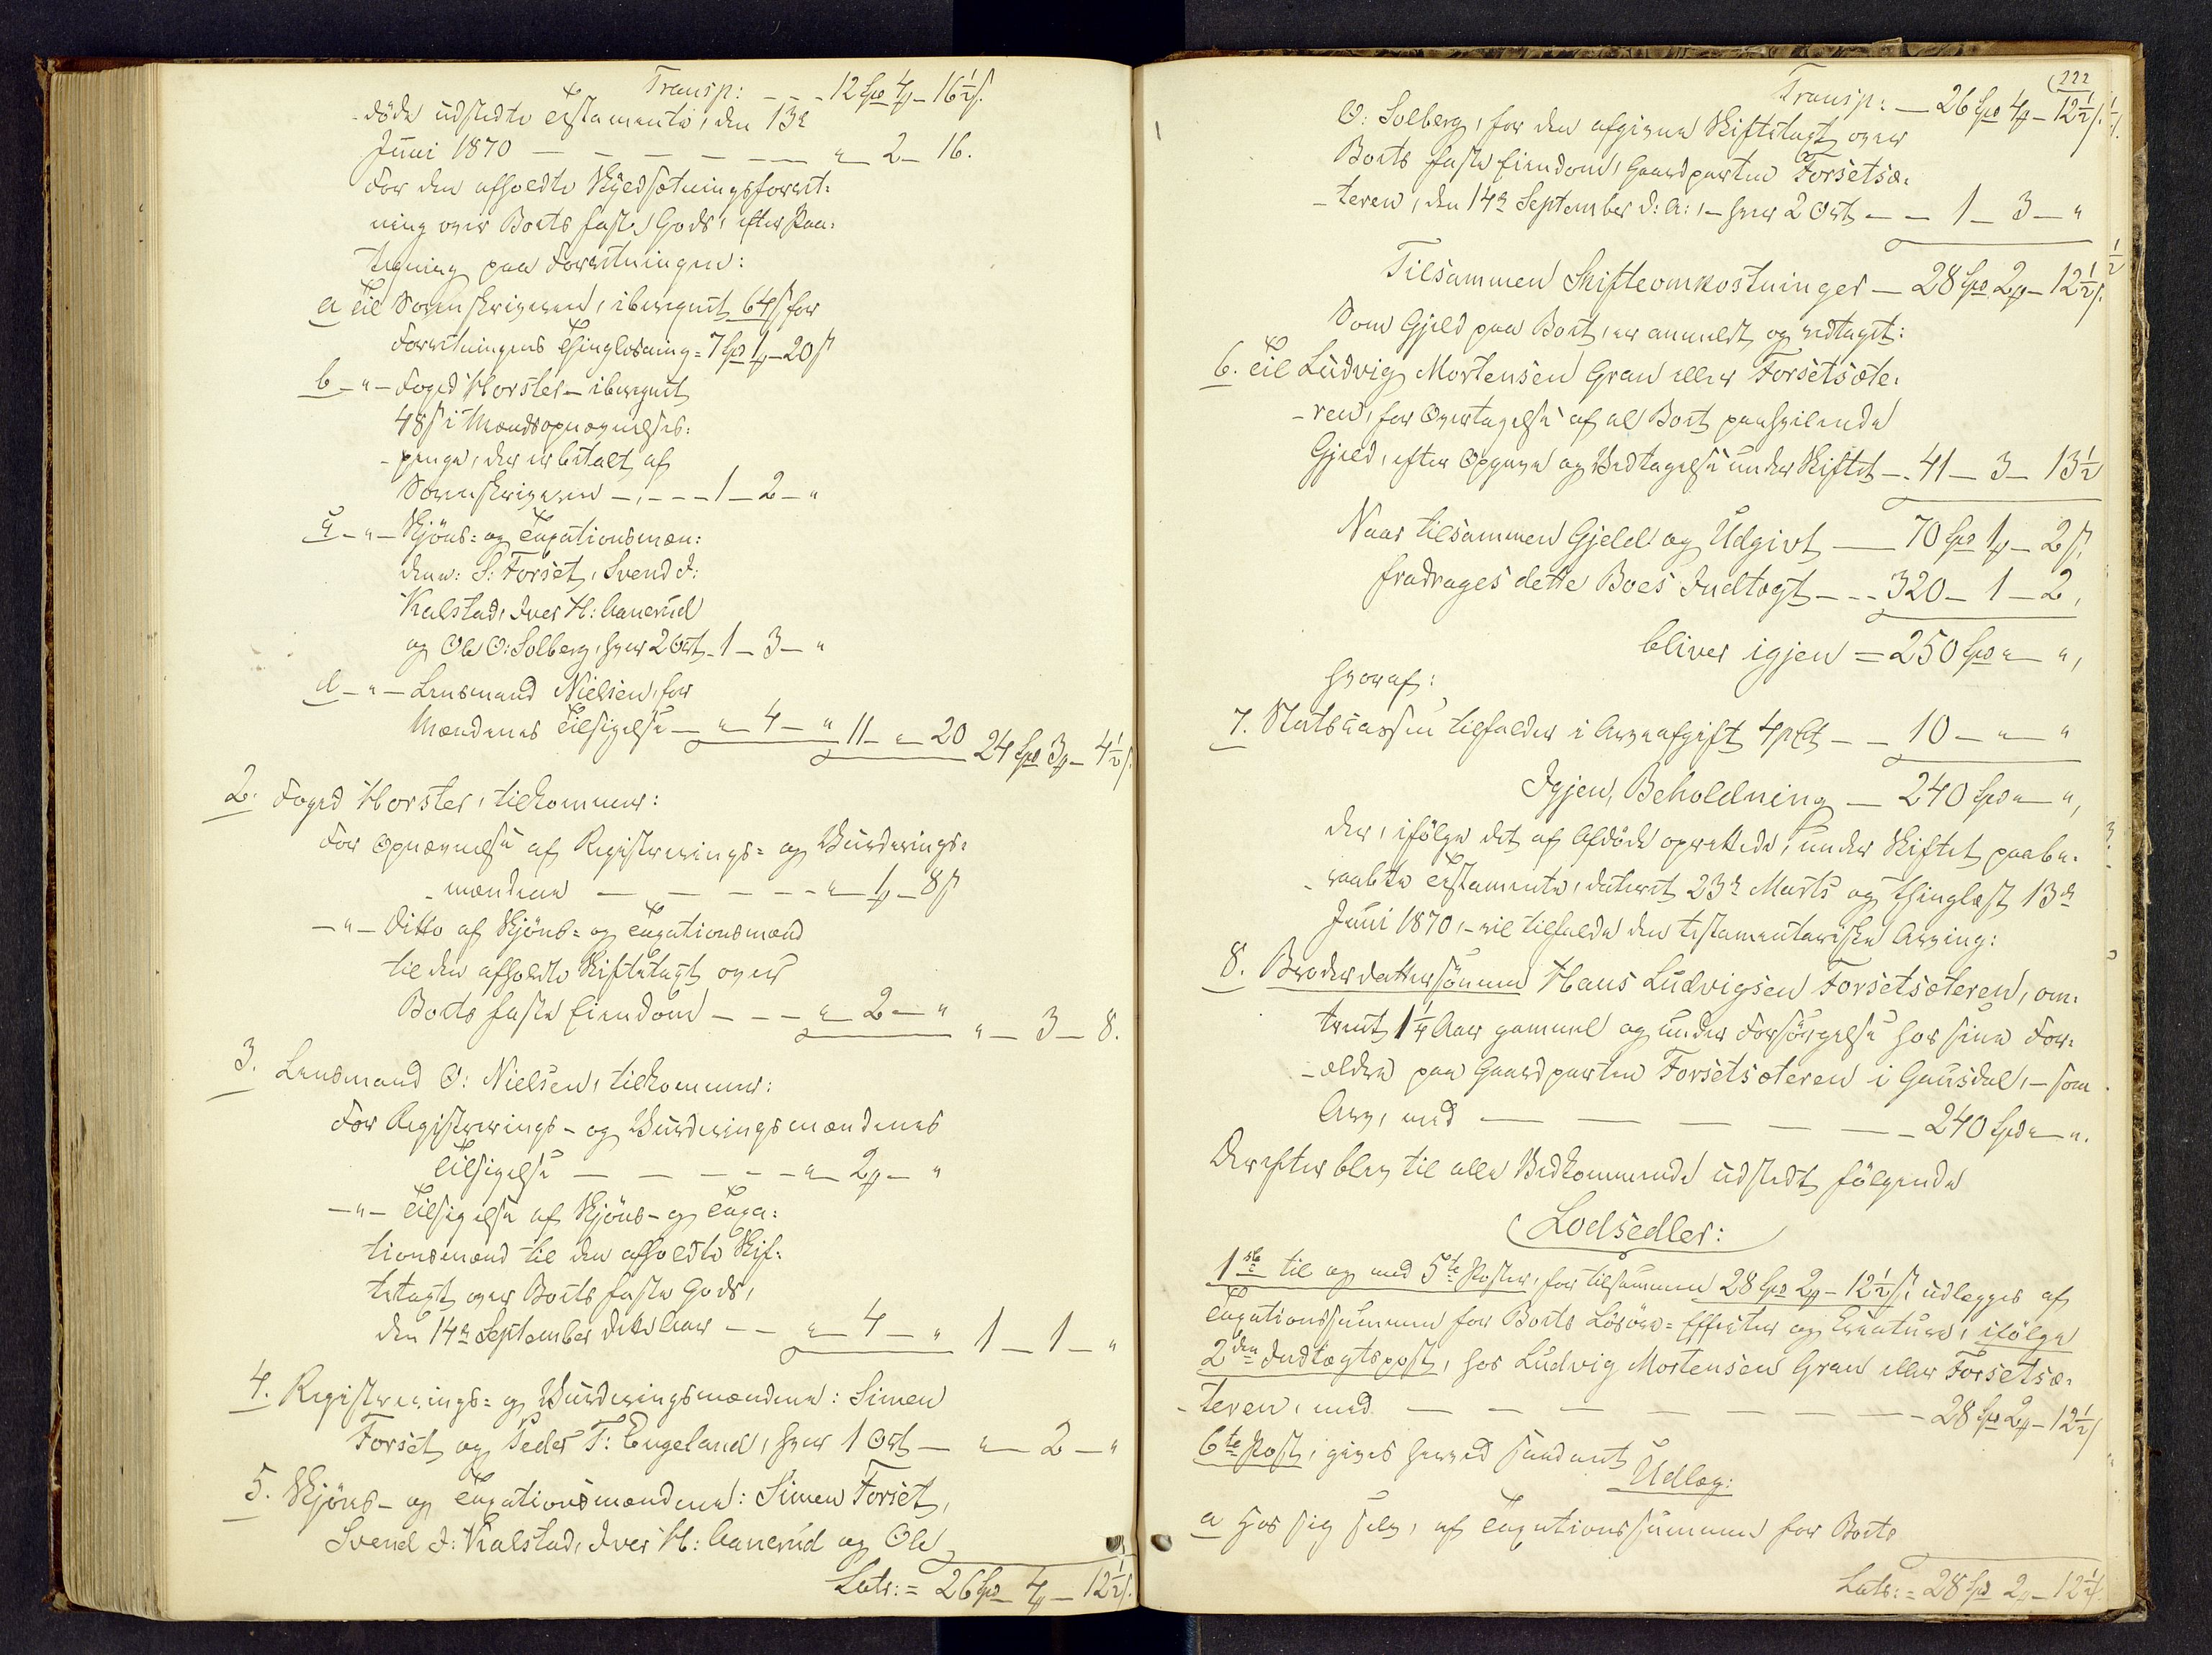 Transp: - - - 12 Spd 4 # - 16½ s.
døde udstedte Testamente, den 13de
Juni 1870 — — — — — " 2 - 16.
For den afholdte Skyldsætningsforret-
ning over Boets faste Gods, efter Paa-
tegning paa Forretningen:
a Til Sorenskriveren, iberegnet 64 s for
Forretningens Thinglæsning = 7 Spd 1 # - 20 s
b - " - Foged Horster - iberegnet
48 s i Mændsopnævnelses-
penge, der er betalt af
Sorenskriveren - - - - 1 - 2 - "
c - " - Skjöns- og Taxationsmæn-
dene: S: Forset, Svend J:
Kalstad, Iver H: Aanerud
og Ole O: Solberg, hver 2 Ort - 1 - 3 - "
d - " - Lensmand Nielsen, for
Mændenes Tilsigelse - " - 4 - " 11 - " - 20 24 Spd 3 # - 4½ s.
2. Foged Horster, tilkommer:
For Opnævnelse af Registrerings- og Vurderings-
mændene — — — - - " - 1 # - 8 s
- " - Ditto af Skjöns- og Taxationsmænd
til den afholdte Skiftetaxt over
Boets faste Eiendom - - - " - 2 - " " - 3 - 8.
3. Lensmand O: Nielsen, tilkommer:
For Registrerings- og Vurderingsmændenes
Tilsigelse — — — - - " - 2 # - "
- " - Tilsigelse af Skjöns- og Taxa-
tionsmænd til den afholdte Skif-
tetaxt over Boets faste Gods,
den 14de September dette Aar - - " - 4 - " 1 - 1 - "
4. Registrerings- og Vurderingsmændene: Simen
Forset og Peder T: Engeland, hver 1 Ort — " - 2 - "
5. Skjöns- og Taxationsmændene: Simen Forset,
Svend J: Kalstad, Iver H: Aanerud og Ole
Lats: = 26 Spd 4 # - 12½ s.
222
Transp: - 26 Spd 4 # - 12½ s.
O: Solberg, for den afgivne Skiftetaxt over
Boets faste Eiendom, Gaardparten Forsetsæ-
teren, den 14de September d: A:, - hver 2 Ort - - 1 - 3 - "
Tilsammen Skifteomkostninger - 28 Spd 2 # - 12½ s.
Som Gjæld paa Boet, er anmeldt og vedtaget:
6. Til Ludvig Mortensen Gran eller Forsetsæte-
ren, for Overtagelse af al Boet paahvilende
Gjæld, efter Opgave og Vedtagelse under Skiftet - . 41 - 3 - 13½
Naar tilsammen Gjeld og Udgivt — 70 Spd 1 # - 2 s,
fradrages dette Boes Indtægt - - - 320 - 1 - 2,
bliver igjen = 250 Spd " - ",
hvoraf:
7. Statscassen tilfalder i Arveafgift 4 pCt - - 10 - " - "
Igjen, Beholdning - 240 Spd " - ",
der, ifölge det af Afdöde oprettede, under Skiftet paabe-
raabte Testamente, dateret 23de Marts og thinglæst 13de
Juni 1870, - vil tilfalde den testamentariske Arving:
8. Broderdattersönnen Hans Ludvigsen Forsetsæteren, om-
trent 1¼ Aar gammel og under Forsörgelse hos sine For-
ældre paa Gaardparten Forsetsæteren i Gausdal, - som
Arv, med — — — — — - 240 Spd " - ".
Derefter blev til alle Vedkommende udstedt fölgende
Lodsedler:
1ste til og med 5te Poster, for tilsammen 28 Spd 2 # - 12½ s, udlægges af
Taxationssummen for Boets Lösöre-Effecter og Creature, ifölge
2den Indtægtspost, hos Ludvig Mortensen Gran eller Forsetsæ-
teren, med — — — — — — - 28 Spd 2 # - 12½ s
6te Post, gives herved saadant
Udlæg:
a Hos sig selv, af Taxationssummen for Boets
Lats: = 28 Spd 2 # - 12½ s.